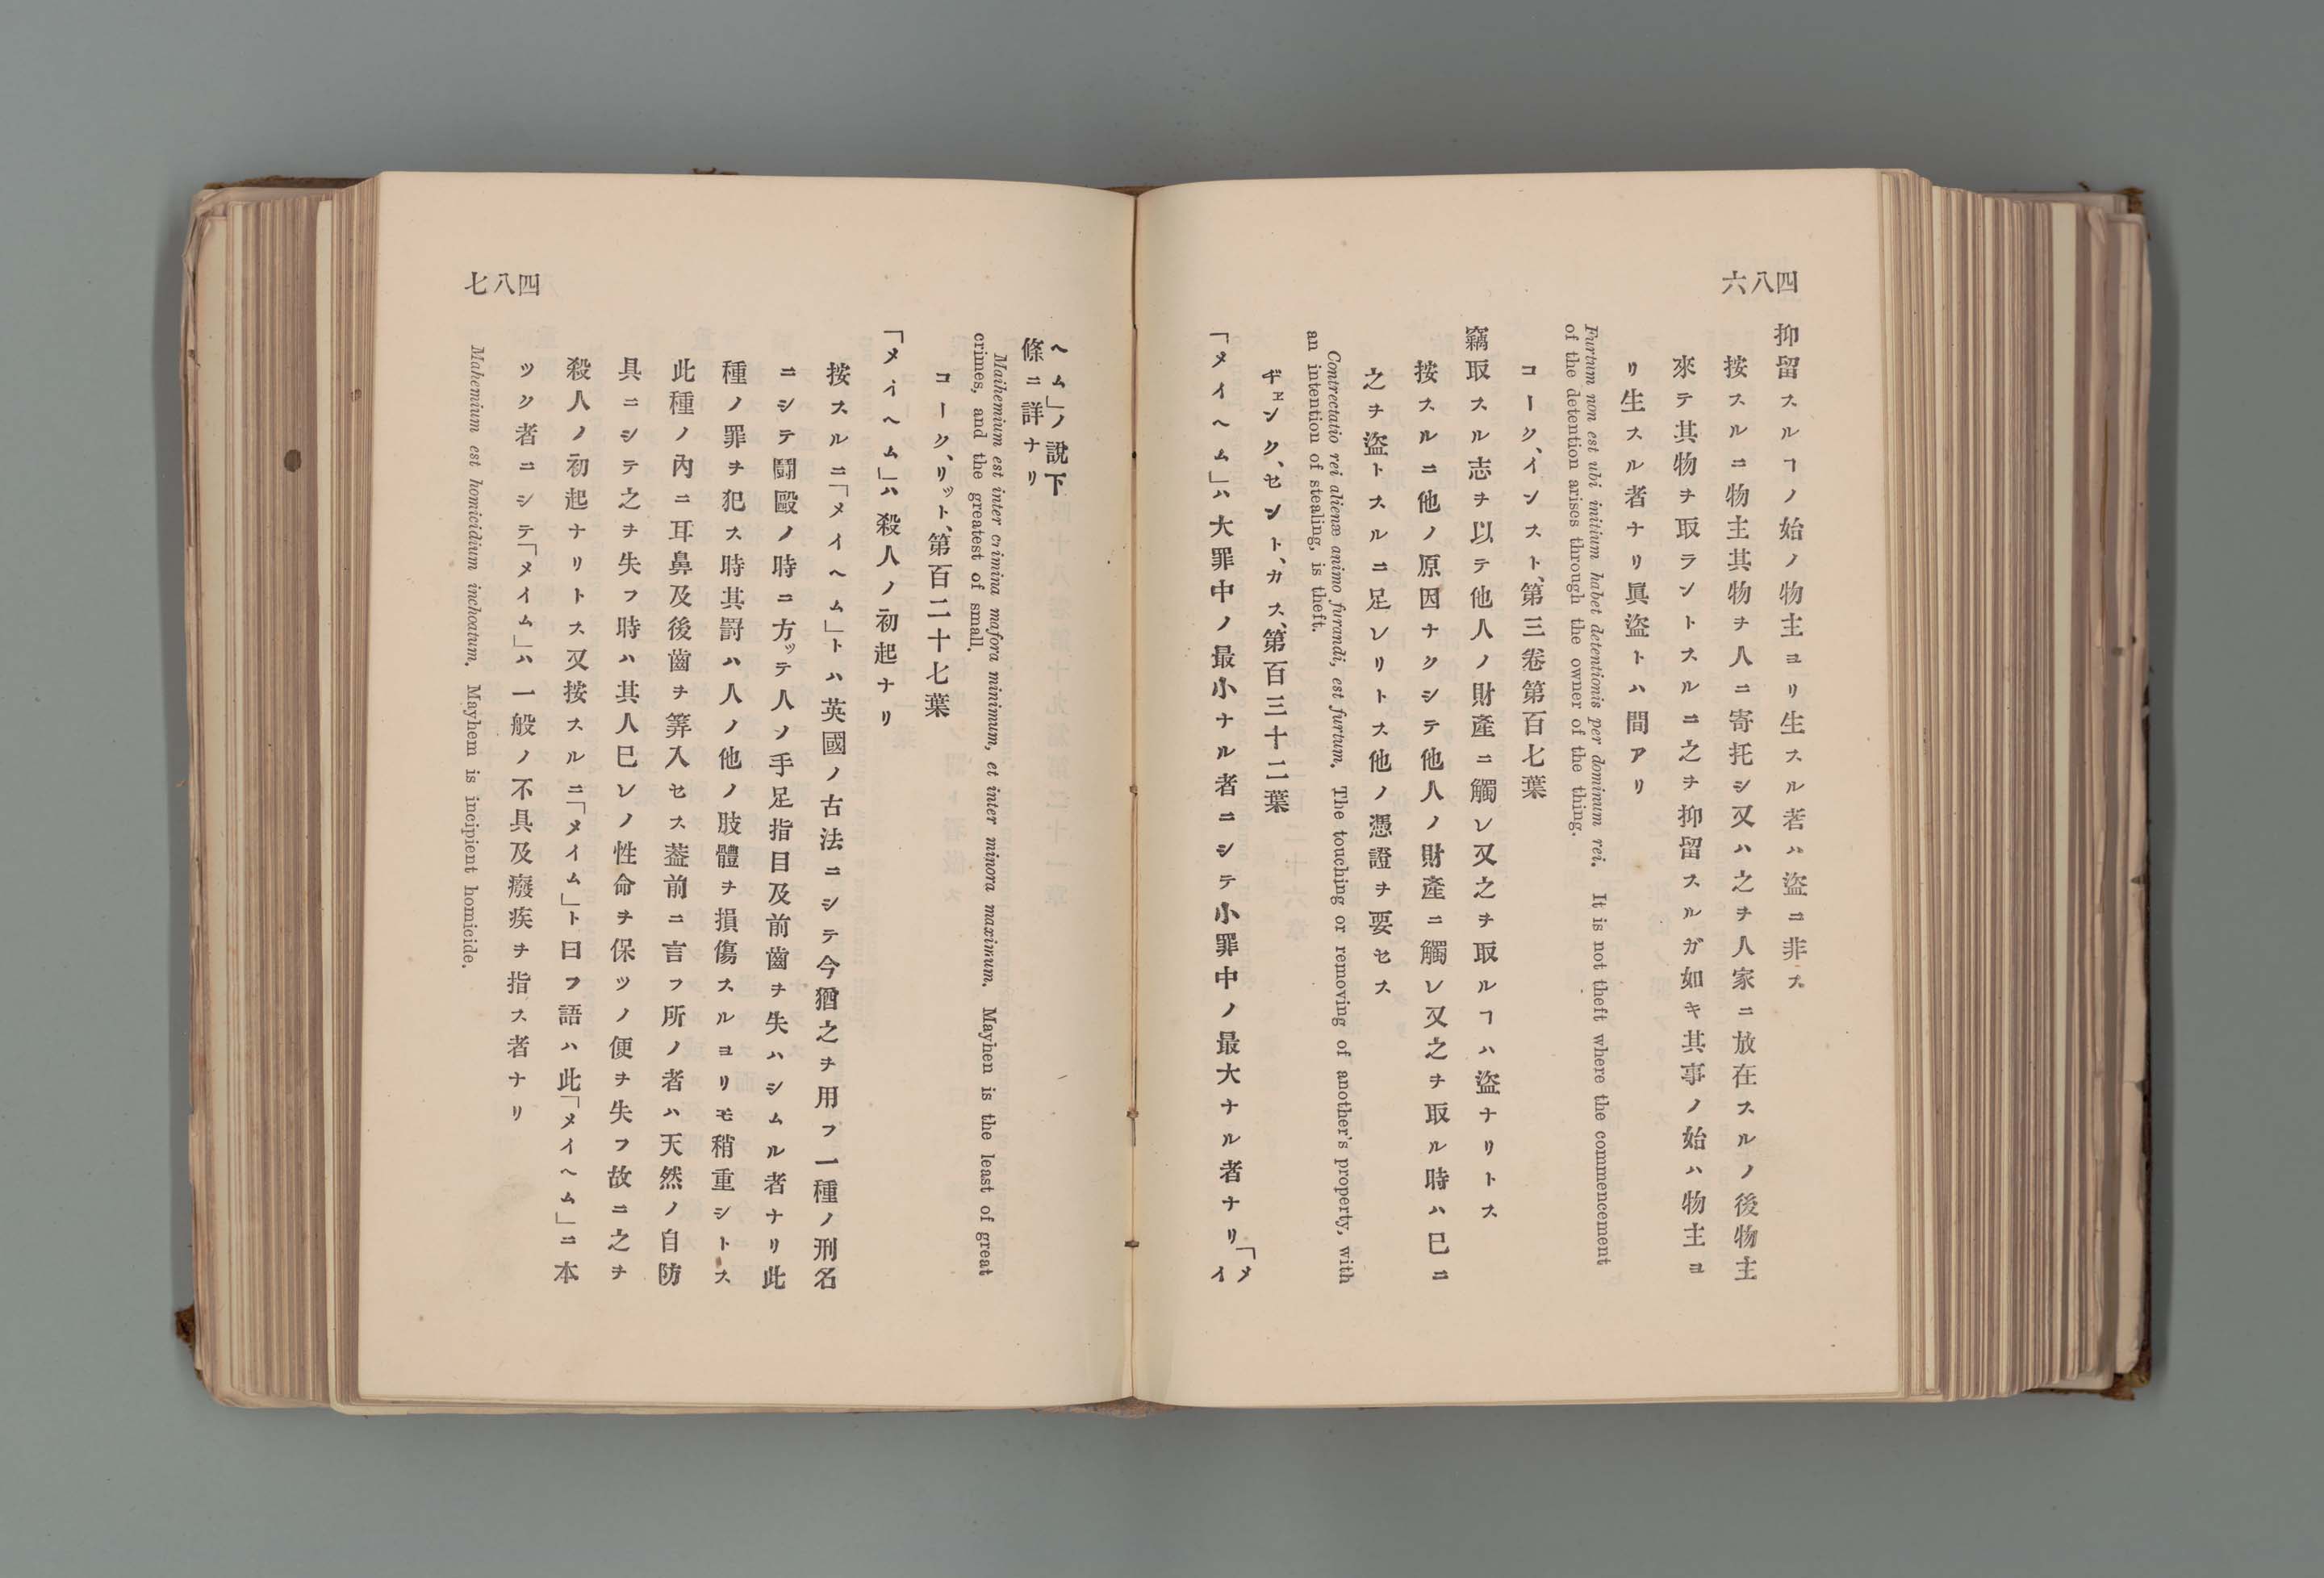 四八六
抑留スルヿノ始ノ物主ヨリ生スル者ハ盜ニ非ス
按スルニ物主其物ヲ人ニ寄托シ又ハ之ヲ人家ニ放在スルノ後物主
來テ其物ヲ取ラントスルニ之ヲ抑留スルガ如キ其事ノ始ハ物主ヨ
リ生スル者ナリ眞盜トハ間アリ
Furtum non est ubi initium habet detentionis per dominum rei. It is not theft where the commencement
of the detention arises through the owner of the thing.
コーク、インスト、第三卷第百七葉
竊取スル志ヲ以テ他人ノ財產ニ觸レ又之ヲ取ルヿハ盜ナリトス
按スルニ他ノ原因ナクシテ他人ノ財產ニ觸レ又之ヲ取ル時ハ已ニ
之ヲ盜トスルニ足レリトス他ノ憑證ヲ要セス
Contrectatio rei alienæ animo furandi, est furtum. The touching or removing of another's property, with
an intention of stealing, is theft.
ヂェンク、セント、カス、第百三十二葉
「メイヘム」ハ大罪中ノ最小ナル者ニシテ小罪中ノ最大ナル者ナリ「メイ
四八七
ヘム」ノ說下
條ニ詳ナリ
Maihemium est inter crimina mafora minimum, et inter minora maximum. Mayhen is the least of great
crimes, and the greatest of small.
コーク、リット、第百二十七葉
「メイヘム」ハ殺人ノ初起ナリ
按スルニ「メイヘム」トハ英國ノ古法ニシテ今猶之ヲ用フ一種ノ刑名
ニシテ鬪毆ノ時ニ方ッテ人ノ手足指目及前齒ヲ失ハシムル者ナリ此
種ノ罪ヲ犯ス時其罸ハ人ノ他ノ肢體ヲ損傷スルヨリモ稍重シトス
此種ノ內ニ耳鼻及後齒ヲ筭入セス葢前ニ言フ所ノ者ハ天然ノ自防
具ニシテ之ヲ失フ時ハ其人已レノ性命ヲ保ツノ便ヲ失フ故ニ之ヲ
殺人ノ初起ナリトス又按スルニ「メイム」ト曰フ語ハ此「メイヘム」ニ本
ツク者ニシテ「メイム」ハ一般ノ不具及癈疾ヲ指ス者ナリ
Mahemium est homicidium inchoatum. Mayhem is incipient homicide.